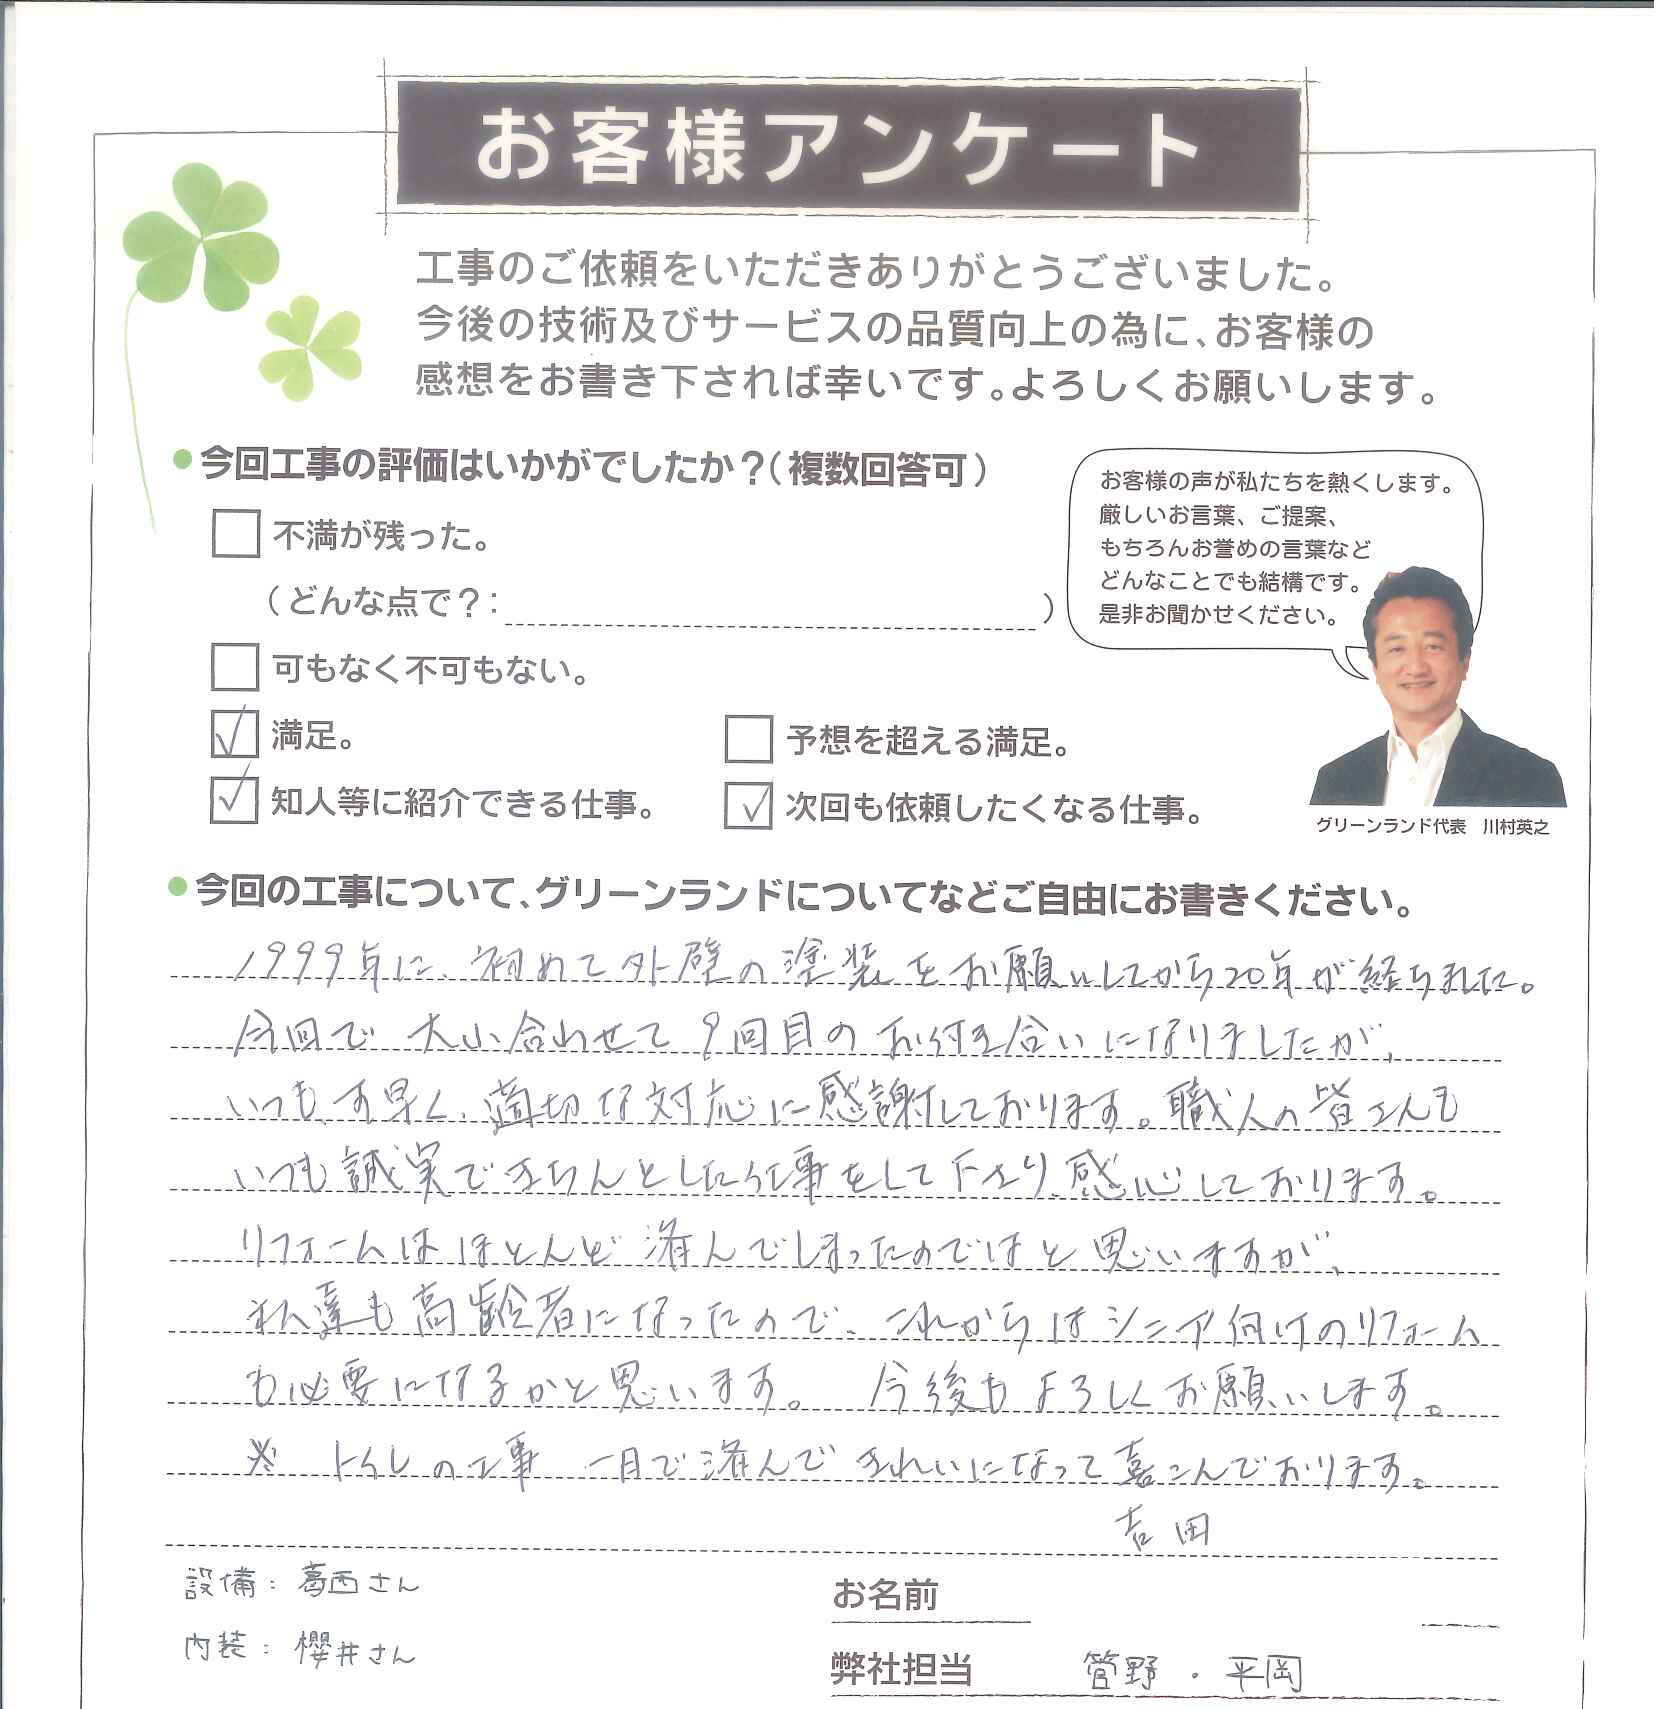 お客様アンケート
工事のご依頼をいただきありがとうございました。
今後の技術及びサービスの品質向上の為に、お客様の
感想をお書き下されば幸いです。よろしくお願いします。
今回工事の評価はいかがでしたか？(複数回答可)
不満が残った。
(どんな点で？: )
可もなく不可もない。
満足。
予想を超える満足。
知人等に紹介できる仕事。
次回も依頼したくなる仕事。
お客様の声が私たちを熱くします。
厳しいお言葉、ご提案、
もちろんお誉めの言葉など
どんなことでも結構です。
是非お聞かせください。
グリーンランド代表 川村英之
今回の工事について、グリーンランドについてなどご自由にお書きください。
1999年に、初めて外壁の塗装をお願いしてから20年が経ちました。
今回で大小合わせて9回目のお付き合いになりましたが、
いつも、す早く、適切な対応に感謝しております。職人の皆さんも
いつも誠実できちんとした仕事をして下さり、感心しております。
リフォームはほとんど済んでしまったのではと思いますが、
私達も高齢者になったので、これからはシニア向けのリフォーム
も必要になるかと思います。 今後もよろしくお願いします。
※ トイレの工事 一日で済んできれいになって喜こんでおります。
吉田
設備：葛西さん
内装：櫻井さん
お名前
弊社担当 管野・平岡